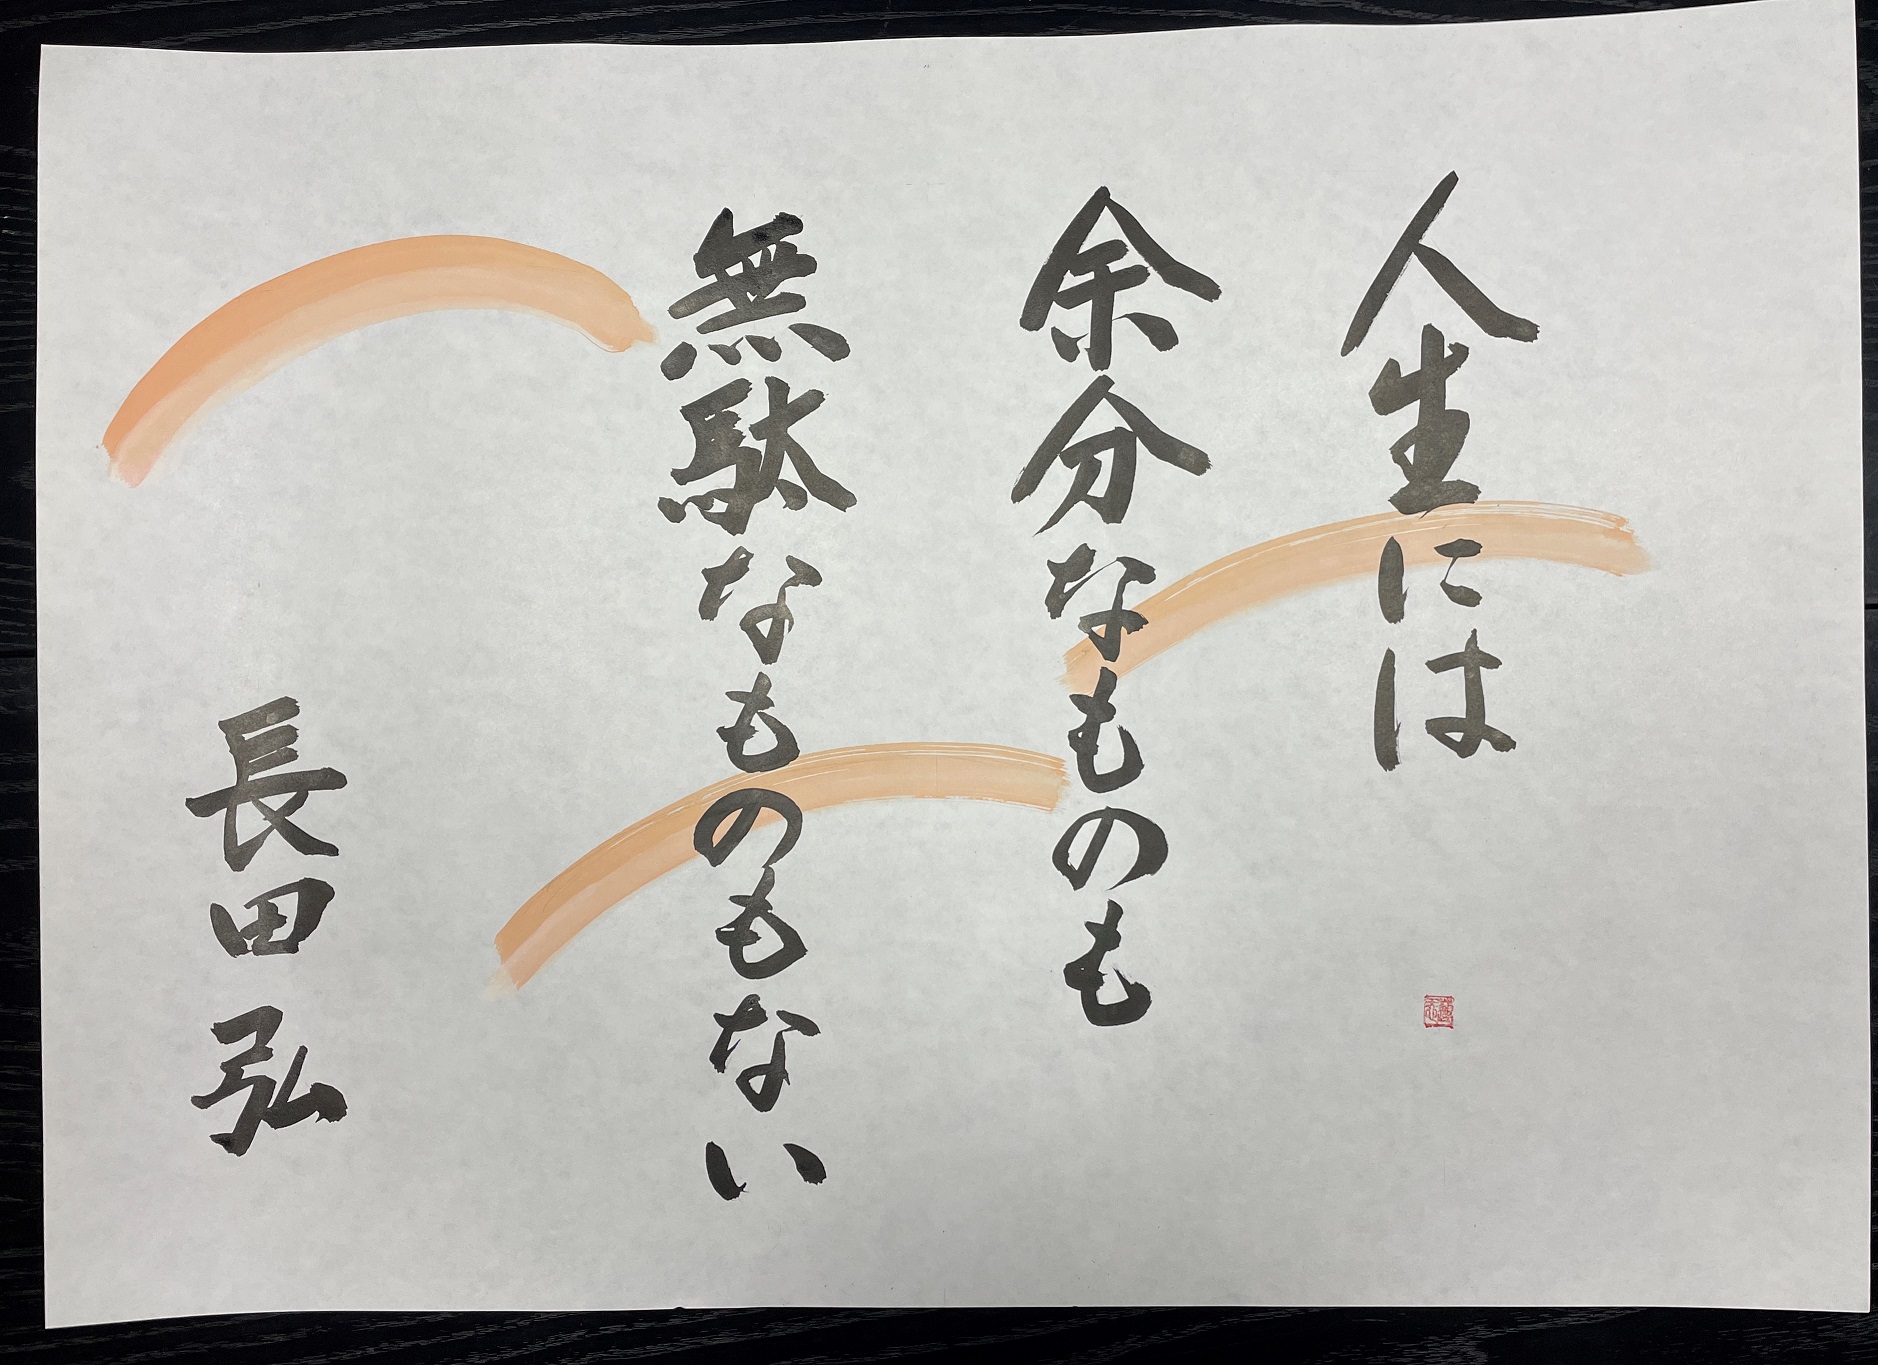 人生には
余分なものも
無駄なものもない
長田弘